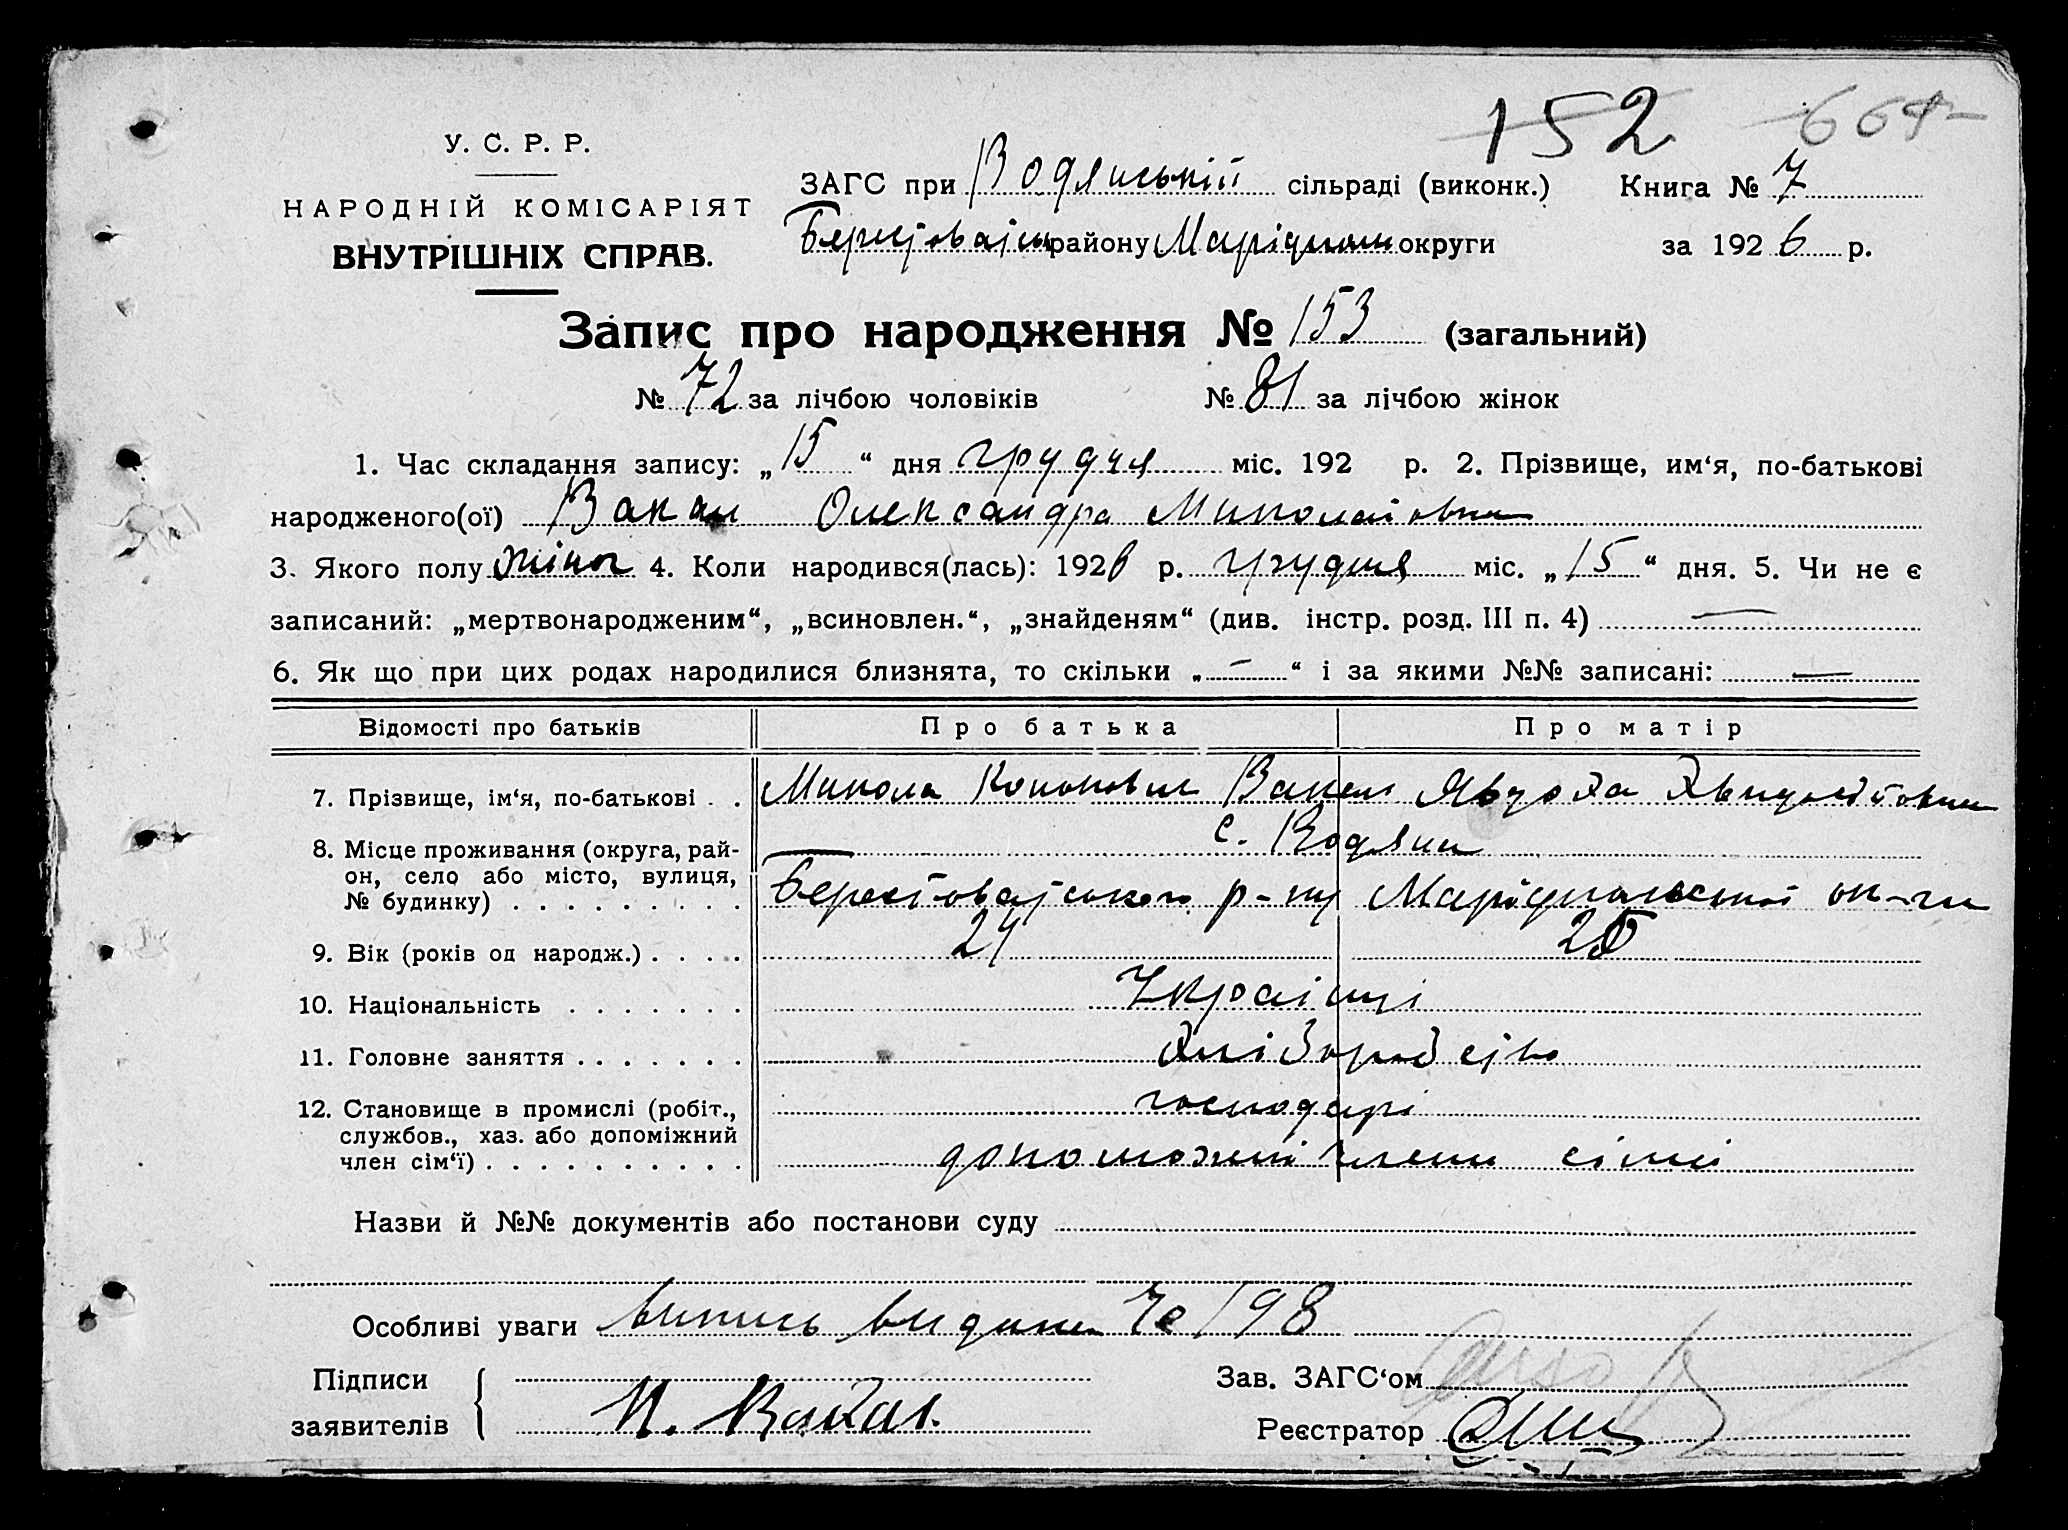 152 664
У. С. Р. Р.
НАРОДНІЙ КОМІСАРІЯТ
ВНУТРІШНІХ СПРАВ.
ЗАГС при Водянській сільраді (виконк.) Книга № 7
району округи за 1926 р.
Запис про народження № 153 (загальний)
№ 72 за лічбою чоловіків № 81 за лічбою жінок
1. Час складання запису: „15“ дня грудня міс. 192 р. 2. Прізвище, им‘я, по-батькові
народженого(ої) Вакал Олександра Миколаївна
3. Якого полу жіноч 4. Коли народився(лась): 1926 р. грудня міс. „15“ дня. 5. Чи не є
записаний: „мертвонародженим“, „всиновлен.“, „знайденям“ (див. інстр. розд. III п. 4) —
6. Як що при цих родах народилися близнята, то скільки „—“ і за якими №№ записані: —
Відомості про батьків Про батька Про матір
7. Прізвище, ім‘я, по-батькові . . Микола Кононович Вакал
8. Місце проживання (округа, рай-
он, село або місто, вулиця,
№ будинку) . . . . . . . . .
с. Водяни
р-ну Маріюпольської ок-ги
9. Вік (років од народж.) . . . . 24 25
10. Національність . . . . . . . Українці
11. Головне заняття . . . . . . . хліборобство
12. Становище в промислі (робіт.,
службов., хаз. або допоміжний
член сім‘ї) . . . . . . . . . .
господарі
допоможні члени сімї
Назви й №№ документів або постанови суду
Особливі уваги випись видана № 198
Підписи
заявителів
М. Вакал.
Зав. ЗАГС‘ом
Реєстратор